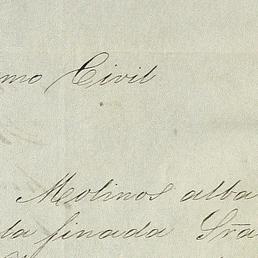 mo Civil
Molinos alba
la finada Sra